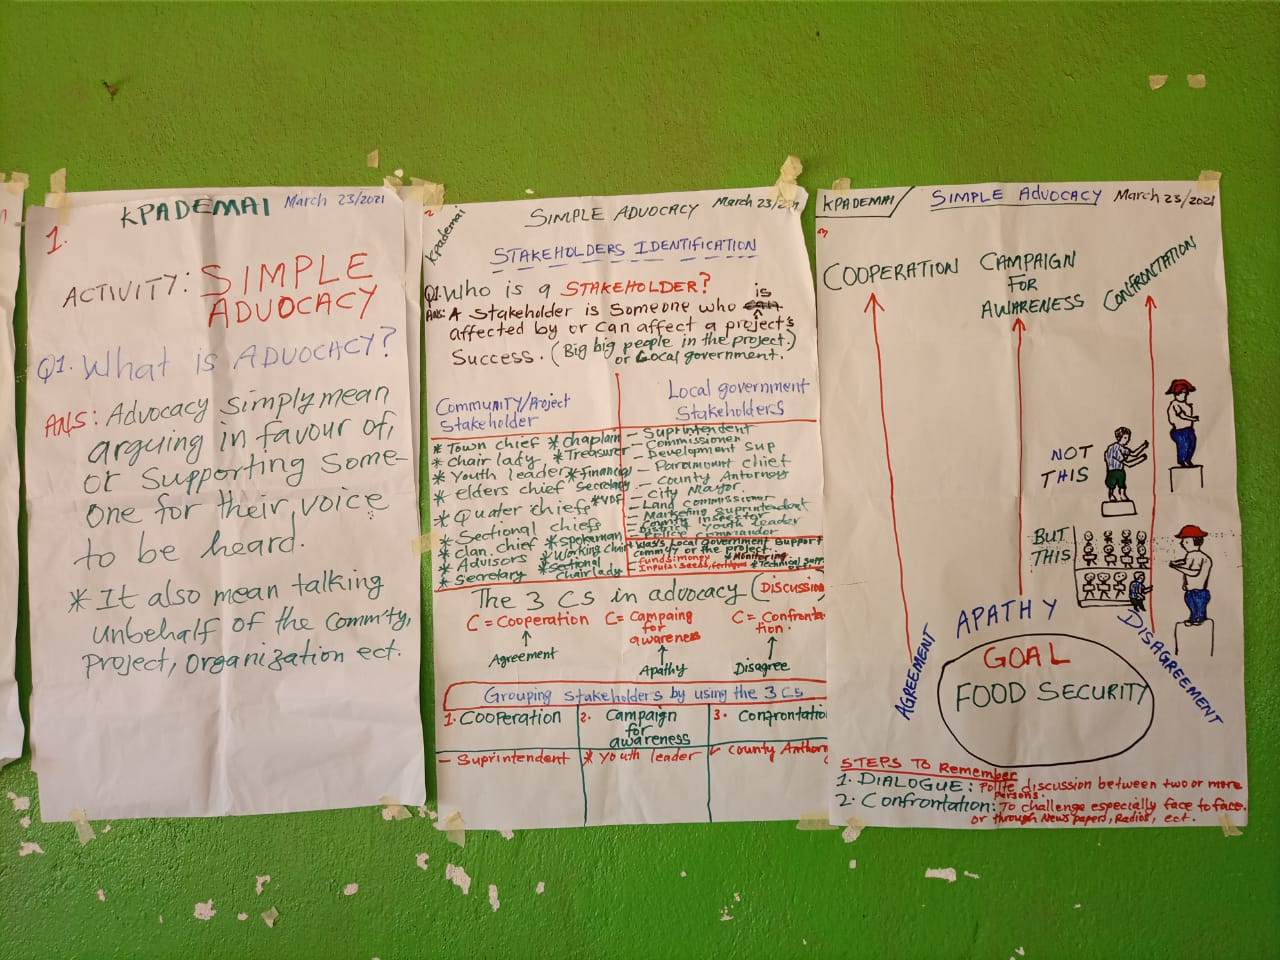 1.
KPADEMAI March 23/2021
ACTIVITY: SIMPLE
ADVOCACY
Q1. What is ADVOCACY?
Ans: Advocacy simply mean
arguing in favour of,
or Supporting Some-
one for their voice
to be heard.
* It also mean talking
unbehalf of the Comm'ty,
project, Organization ect.
2
Kpademai
SIMPLE ADVOCACY March 23/21
STAKEHOLDERS IDENTIFICATION
Q1. Who is a STAKEHOLDER?
is
Ans: A Stakeholder is Someone who can
affected by or can affect a project's
Success. (Big big people in the project.)
or Local government.
Community/Project
Stakeholder
* Town chief * chaplain
* Chair lady * Treasurer
* Youth leader * Financial
Secretary
* elders chief
* Quater chief * VDF
* Sectional chiefs
* clan chief * spokeman
* Advisors * Working chair
* Secretary * Sectional
chair lady
Local government
Stakeholders
- Suprintendent
- Commissioner
- Development Sup
- Paramount chief
- County Antorney
- City Mayor
- Land commissioner
- Marketing suprintendent
- County inspector
- District Youth leader
- Police commander
* Ways Local government Support
comm'ty or the project.
- funds: money * Monitoring
- Inputs: seeds, * Technical supp
The 3 Cs in advocacy (Discussion
C = Cooperation C = Campaing C = Confronta
for tion.
awareness
Agreement Apathy Disagree
Grouping stakeholders by using the 3 Cs
1. Cooperation 2. Campaign 3. Confrontatio
for
awareness
- Suprintendent * Youth leader County
3
KPADEMAI SIMPLE ADVOCACY March 23/2021
COOPERATION CAMPAIGN CONFRONTATION
FOR
AWARENESS
NOT
THIS
BUT
THIS
AGREEMENT APATHY DISAGREEMENT
GOAL
FOOD SECURITY
STEPS TO Remember
1. DIALOGUE: Polite discussion between two or more
persons.
2. Confrontation: To challenge especially face to face.
or through News papers, Radios, ect.